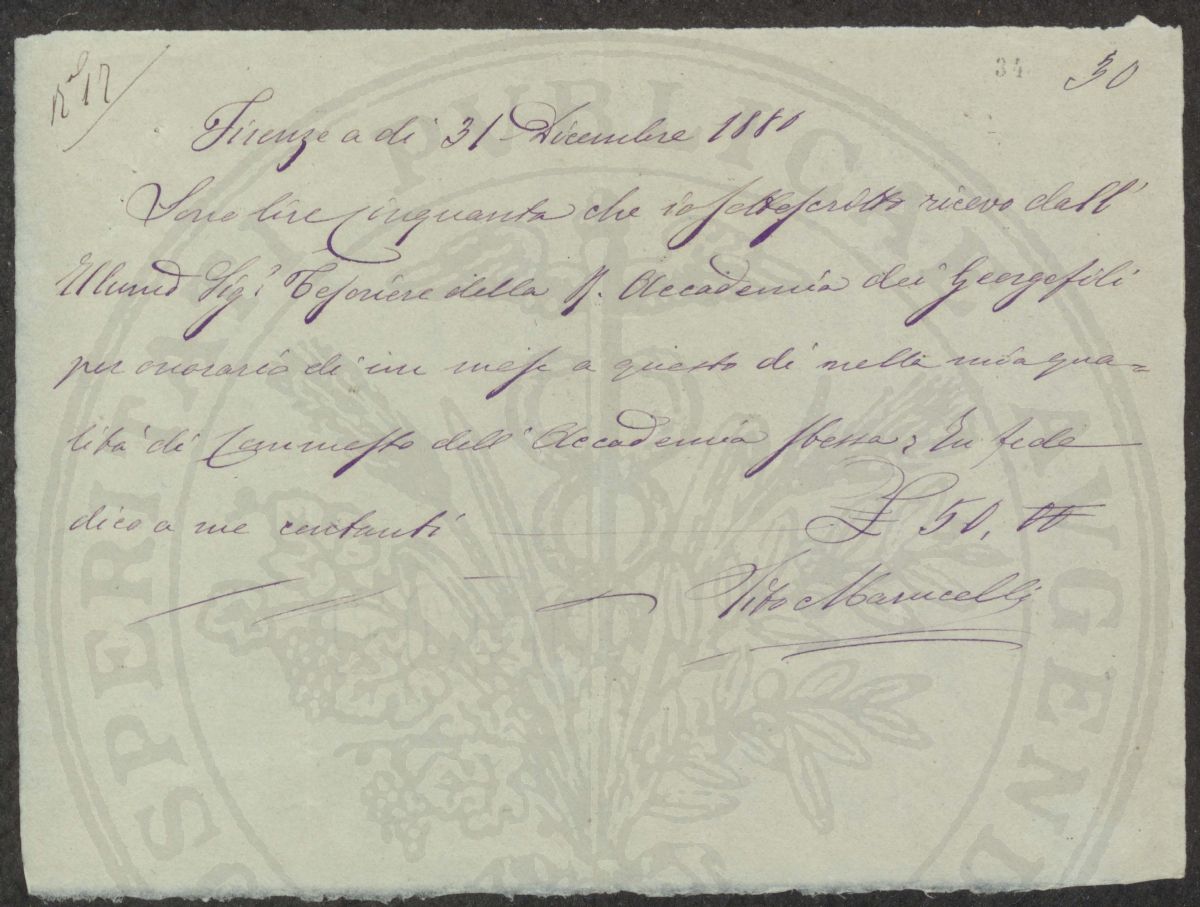 N.º 12
34
30
Firenze a di 31 Dicembre 1880
Sono lire cinquanta che io sottoscritto ricevo dall'
Illmo Sigr Tesoriere della R. Accademia dei Georgofili
per onorario di un mese a questo di nella mia qua=
lità di Commesso dell'Accademia stessa, In fede
dico a me contanti £ 50, 00
Tito Marucelli
PROSPERITATI PUBLICAE AUGENDAE